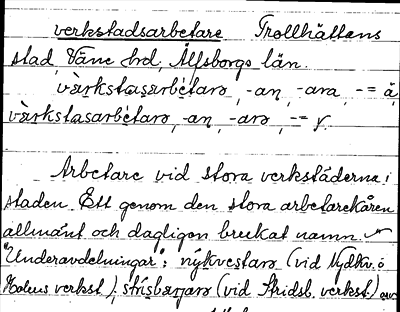 verkstadsarbetare Trollhättans
stad, Väne hd, Älfsborgs län.
vàrkstasarbétarə, -an, -ara, -= ä,
vàrkstasarbètarə, -an, -arə, -= γ.
Arbetare vid stora verkstäderna i
staden. Ett genom den stora arbetarekåren
allmänt och dagligen brukat namn.
"Underavdelningar": nýkvestarə (vid Nydkv. o
Holms verkst.), strisbærjarə (vid Stridsb. verkst.)